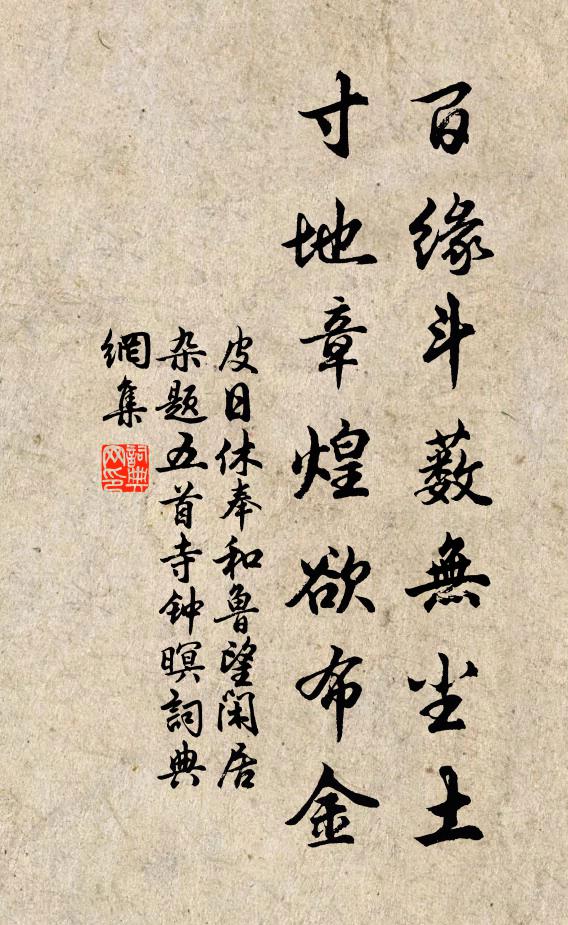 百缘斗薮無尘土
寸地章煌欲布金
皮日休奉和鲁望闲居
杂题五首寺钟暝詞典
網集
詞典
网印